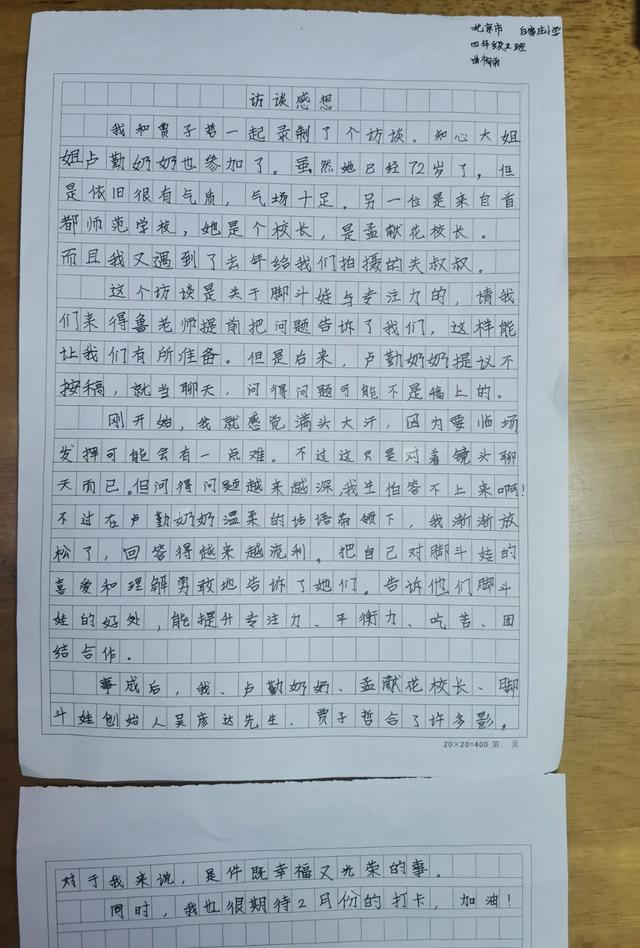 北京市 白家庄小学
四年级2班
访谈感想
我和贾子哲一起录制了个访谈。知心大姐
姐卢勤奶奶也参加了。虽然她已经72岁了，但
是依旧很有气质，气场十足。另一位是来自首
都师范学校，她是个校长，是孟献花校长。
而且我又遇到了去年给我们拍摄的关叔叔。
这个访谈是关于脚斗娃与专注力的，请我
们来得鲁老师提前把问题告诉了我们，这样能
让我们有所准备。但是后来，卢勤奶奶提议不
按稿，就当聊天，问得问题可能不是稿上的。
刚开始，我就感觉满头大汗，因为要临场
发挥可能会有一点难。不过这只是对着镜头聊
天而已。但问得问题越来越深，我生怕答不上来啊！
不过在卢勤奶奶温柔的话语带领下，我渐渐放
松了，回答得越来越流利。把自己对脚斗娃的
喜爱和理解勇敢地告诉了她们。告诉他们脚斗
娃的好处，能提升专注力、平衡力、吃苦、团
结合作。
事成后，我、卢勤奶奶、孟献花校长、脚
斗娃创始人吴彦达先生、贾子哲合了许多影。
20×20=400 第 页
对于我来说，是件既幸福又光荣的事。
同时，我也很期待2月份的打卡，加油！